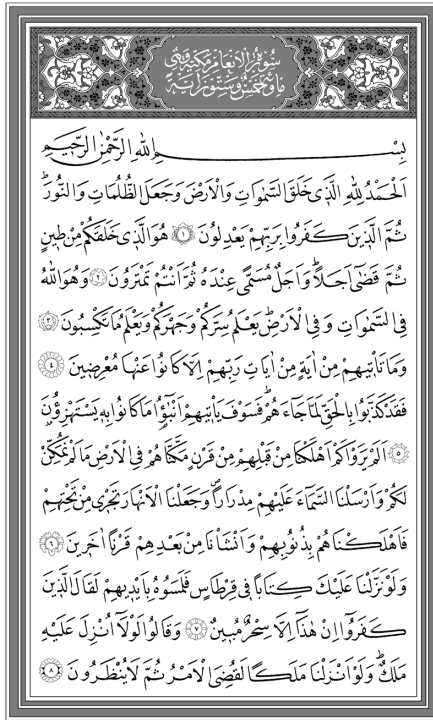 سُورَةُ الْاَنْعَامِ مَكِّيَّةٌ وَهِيَ
مِائَةٌ وَخَمْسٌ وَسِتُّونَ اٰيَةً
بِسْمِ اللّٰهِ الرَّحْمٰنِ الرَّحٖيمِ
اَلْحَمْدُ لِلّٰهِ الَّذٖى خَلَقَ السَّمٰوَاتِ وَالْاَرْضَ وَجَعَلَ الظُّلُمَاتِ وَالنُّورَؕ
ثُمَّ الَّذٖينَ كَفَرُوا بِرَبِّهِمْ يَعْدِلُونَ ﴿١﴾ هُوَ الَّذٖى خَلَقَكُمْ مِنْ طٖينٍ
ثُمَّ قَضٰٓى اَجَلًاؕ وَاَجَلٌ مُسَمًّى عِنْدَهُ ثُمَّ اَنْتُمْ تَمْتَرُونَ ﴿٢﴾ وَهُوَ اللّٰهُ
فِى السَّمٰوَاتِ وَفِى الْاَرْضِؕ يَعْلَمُ سِرَّكُمْ وَجَهْرَكُمْ وَيَعْلَمُ مَا تَكْسِبُونَ ﴿٣﴾
وَمَا تَاْتٖيهِمْ مِنْ اٰيَةٍ مِنْ اٰيَاتِ رَبِّهِمْ اِلَّا كَانُوا عَنْهَا مُعْرِضٖينَ ﴿٤﴾
فَقَدْ كَذَّبُوا بِالْحَقِّ لَمَّا جَٓاءَهُمْؕ فَسَوْفَ يَاْتٖيهِمْ اَنْبٰٓؤُا مَا كَانُوا بِهٖ يَسْتَهْزِؤُ۫نَ
﴿٥﴾ اَلَمْ يَرَوْا كَمْ اَهْلَكْنَا مِنْ قَبْلِهِمْ مِنْ قَرْنٍ مَكَّنَّاهُمْ فِى الْاَرْضِ مَا لَمْ نُمَكِّنْ
لَكُمْ وَاَرْسَلْنَا السَّمَٓاءَ عَلَيْهِمْ مِدْرَارًا وَجَعَلْنَا الْاَنْهَارَ تَجْرٖى مِنْ تَحْتِهِمْ
فَاَهْلَكْنَاهُمْ بِذُنُوبِهِمْ وَاَنْشَاْنَا مِنْ بَعْدِهِمْ قَرْنًا اٰخَرٖينَ ﴿٦﴾
وَلَوْ نَزَّلْنَا عَلَيْكَ كِتَابًا فٖى قِرْطَاسٍ فَلَمَسُوهُ بِاَيْدٖيهِمْ لَقَالَ الَّذٖينَ
كَفَرُٓوا اِنْ هٰذَٓا اِلَّا سِحْرٌ مُبٖينٌ ﴿٧﴾ وَقَالُوا لَوْلَٓا اُنْزِلَ عَلَيْهِ
مَلَكٌؕ وَلَوْ اَنْزَلْنَا مَلَكًا لَقُضِىَ الْاَمْرُ ثُمَّ لَا يُنْظَرُونَ ﴿٨﴾